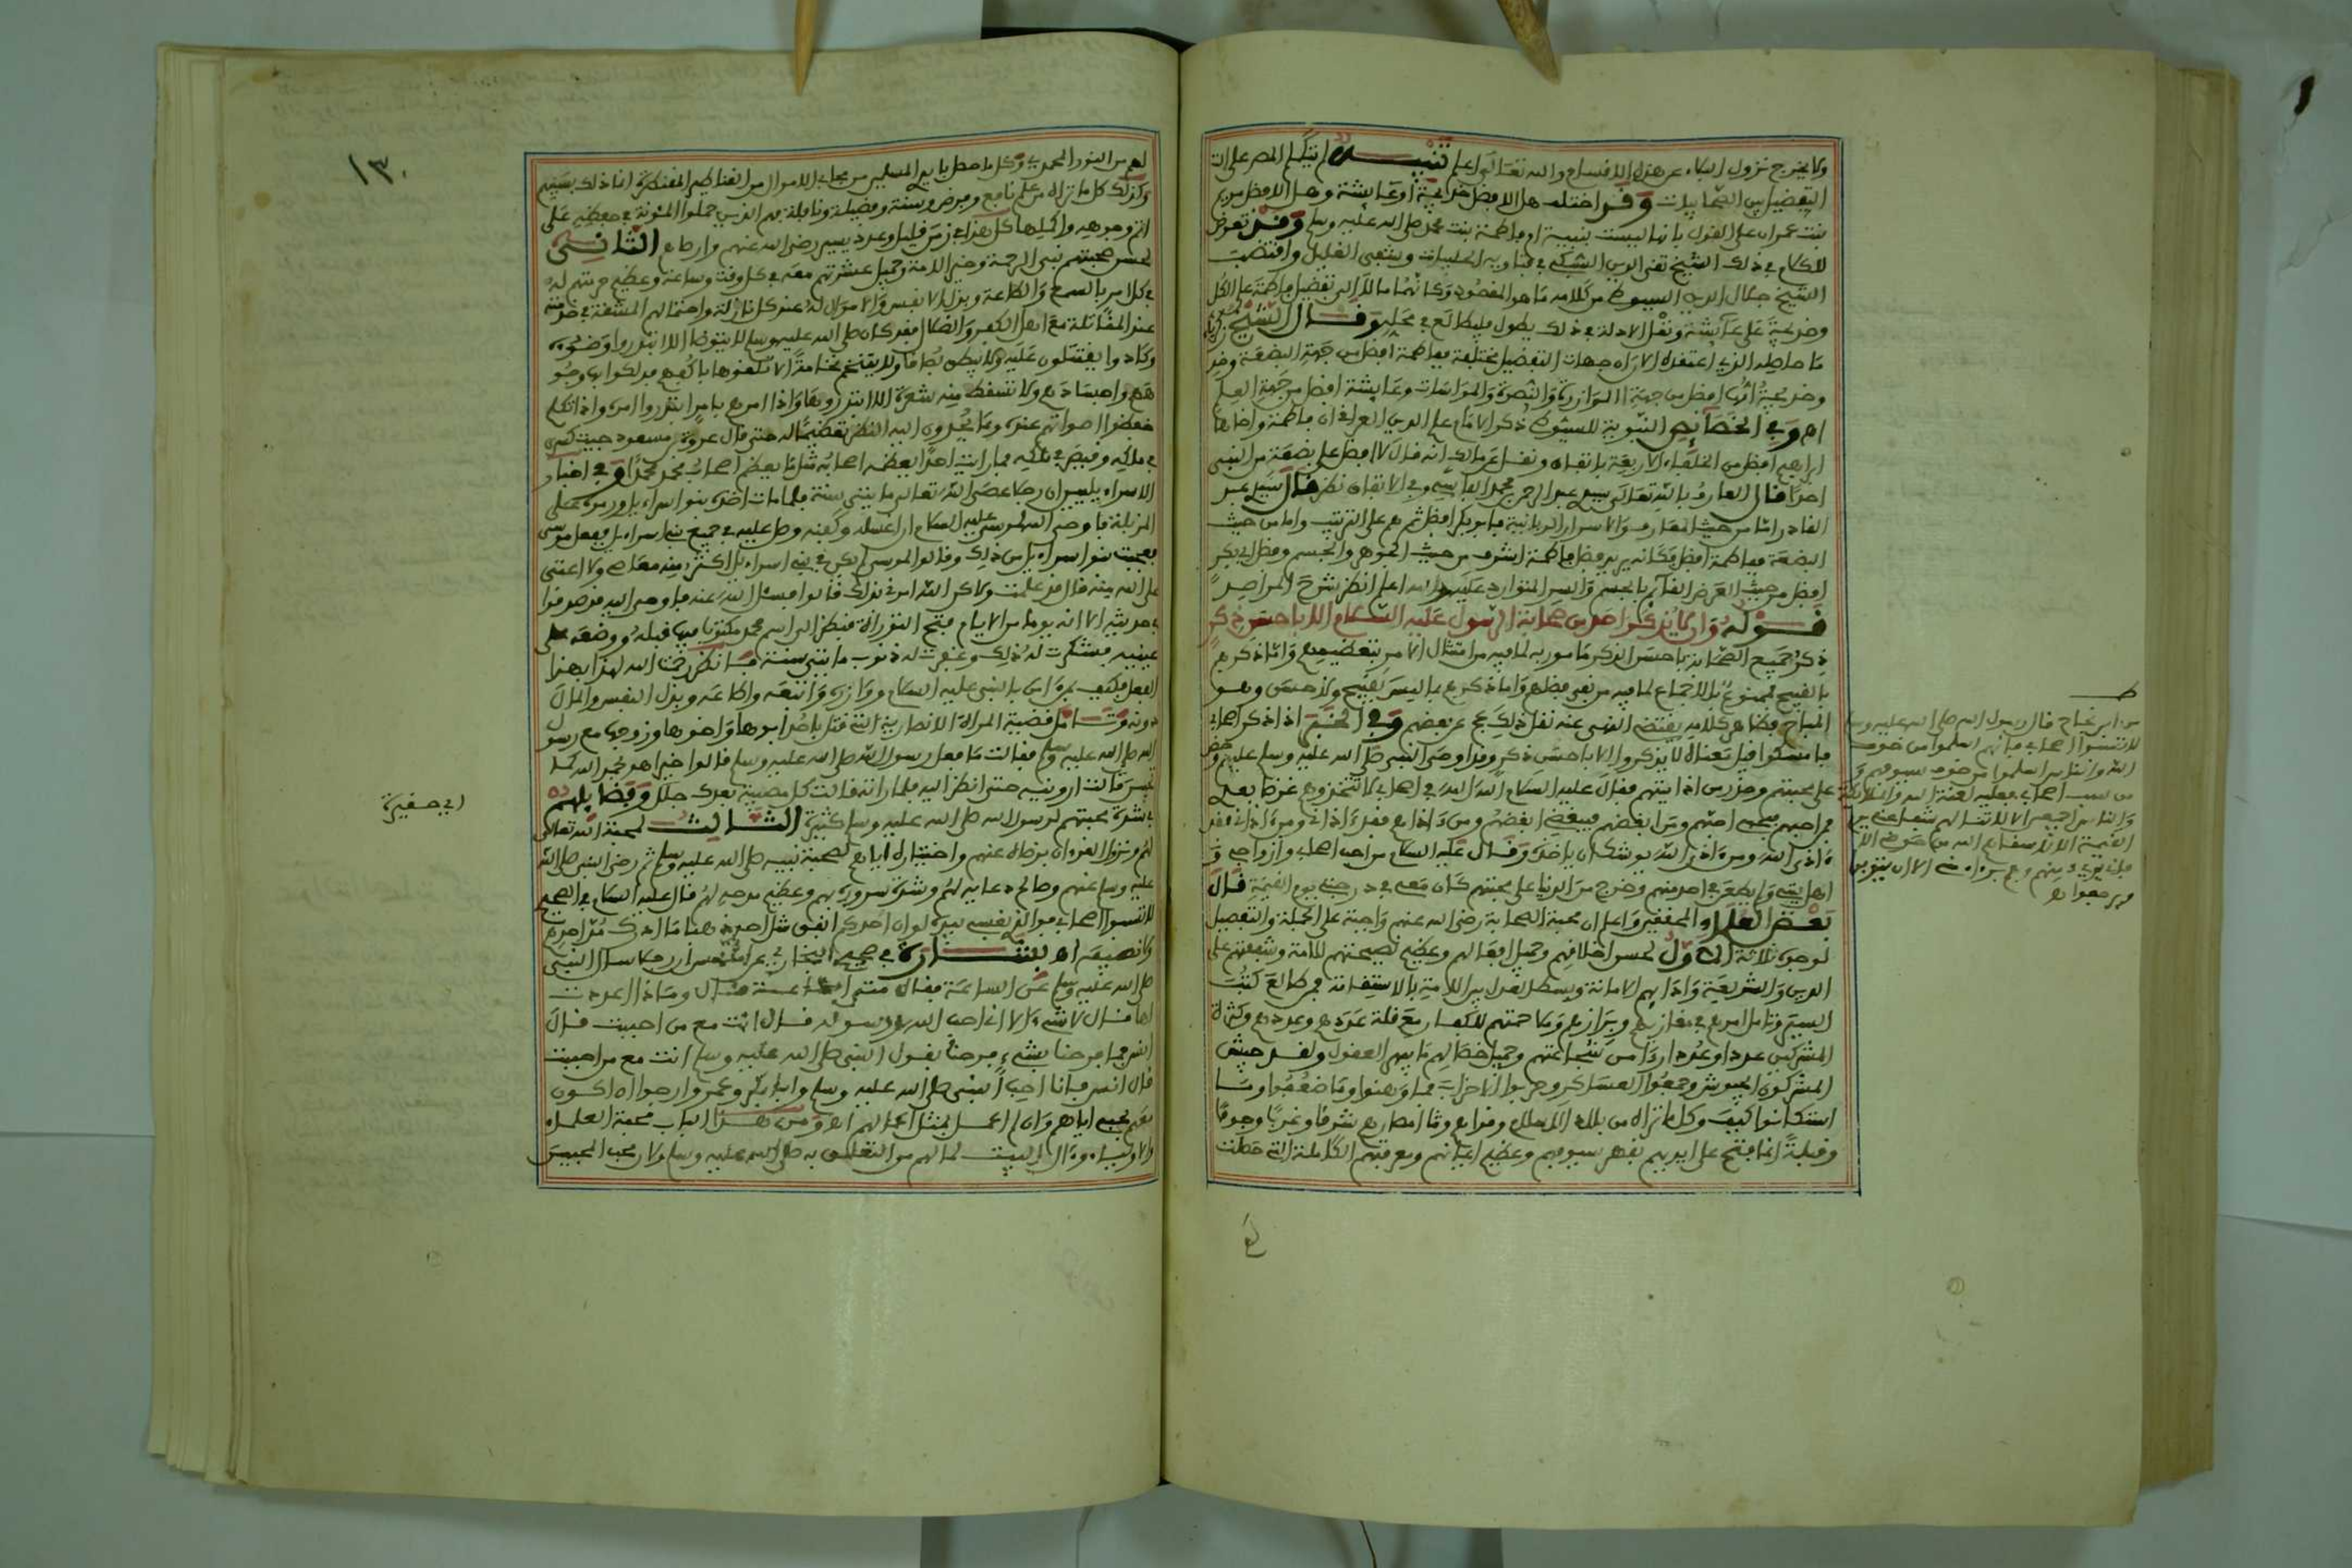 ولا يخرج نزول الباء عن هذه الاقسام والله تعالى اعلم تنبيه لم يتكلم المص على ان
التفضيل بين الصحابيات وقد اختلف هل الافضل خديجة او عايشة وهل الافضل مريم
بنت عمران على القول بانها ليست بنبية ام فاطمة بنت محمد صلى الله عليه وسلم وقد تعرض
للكلام في ذلك الشيخ تقي الدين السبكي في فتاويه الحلبيات وشفى الغليل واقتضب
الشيخ جلال الدين السيوطي من كلامه ما هو المقصود وكانهما مالا الى تفضيل فاطمة على الكل
وخديجة على عايشة ونقل الادلة في ذلك يطول فليطالع في محله وقال الشيخ
ما حاصله الذي اعتقده الان ان جهات التفضيل مختلفة ففاطمة افضل من جهة البضعة
وخديجة افضل من جهة الموازرة والنصرة والمواسات وعايشة افضل من جهة العلم
اه وفي الخصائص النبوية للسيوطي ذكر الامام علم الدين العراقي ان فاطمة واخاها
ابراهيم افضل من الخلفاء الاربعة باتفاق ونقل عن مالك انه قال لا افضل على بضعة من النبي
احدا قال العارف بالله تعالى سيدي عبد الرحمن بن محمد الفاسي وفي الاتفاق نظر قال سيدي عبد
القادر اما من حيث المعارف والاسرار الربانية فابو بكر افضل ثم هم على الترتيب واما من حيث
البضعة ففاطمة افضل فكانه يريد فضل فاطمة اشرف من حيث الجوهر والجسم وفضل ابي بكر
افضل من حيث العرض القائم بالجسم والسر المتوارد عليه والله اعلم انظر شرح المراصد
قوله وان لا يذكر احد من صحابة الرسول عليه السلام الا باحسن ذكر
ذكر جميع الصحابة باحسن الذكر مامور به لما فيه من امتثال الامر بتعظيمهم واما ذكرهم
بالقبيح فممنوع بالاجماع لما فيه من نفي فضلهم واما ذكرهم بما ليس بقبيح ولا حسن وهو
المباح فظاهر كلامه يقتضي النهي عنه نقل ذلك عن بعضهم وفي الخبر اذا ذكر اصحابي
فامسكوا قيل معناه لا يذكروا الا باحسن ذكر وقد اوصى النبي صلى الله عليه وسلم عليهم وحض
على محبتهم وحذر من اذايتهم فقال عليه السلام الله الله في اصحابي لا تتخذوهم غرضا بعدي
فمن احبهم فبحبي احبهم ومن ابغضهم فببغضي ابغضهم ومن ءاذاهم فقد ءاذاني ومن ءاذاني فقد
ءاذى الله ومن ءاذى الله يوشك ان ياخذه وقال عليه السلام من احب اصحابي وازواجي و
اهل بيتي ولم يطعن في احد منهم وخرج من الدنيا على محبتهم كان معي في درجتي يوم القيمة قال
بعض العلماء المحققين واعلم ان محبة الصحابة رضي الله عنهم واجبة على الجملة والتفصيل
لوجوه ثلاثة الاول لحسن اخلاقهم وجميل افعالهم وعظيم نصيحتهم للامة وشفقتهم على
الدين والشريعة
السير وتامل امرهم في مغازيهم وبرازهم ومزاحمتهم للكفار مع قلة عددهم وعددهم وكثرة
المشركين عددا وعددا راى من شجاعتهم وجميل خصالهم ما يبهر العقول ولقد جيش
المشركون الجيوش وجمعوا العساكر وحزبوا الاحزاب فما وهنوا وما ضعفوا وما
استكانوا كيف وكل ما تراه من بلاد الاسلام وقراهم وما امصارهم شرقا وغربا وجوفا
وقبلة انما فتح على ايديهم بقهر سيوفهم وعظيم اعيانهم ومعرفتهم الكاملة التي حصلت
صلى الله عليه وسلم
لا تسبوا اصحابي فانهم اسلموا من خوف
الله والناس اسلموا من خوف سيوفهم و
من سب اصحابي فعليه لعنة الله والملائكة
والناس اجمعين
١٣٠
لهم من النور المحمدي وكل ما حصل بايدي المسلمين من محاب الاموال من القناطير المقنطرة انما ذلك بسببهم
وكذلك كل ما تراه من علم نافع وفرض وسنة وفضيلة ونافلة فهم الذين حملوا المئونة في حفظهم على
اتم وجوهه واكملها كل هذا في زمن قليل وعدد يسير رضي الله عنهم وارضاهم الثاني
لحسن صحبتهم نبي الرحمة وخير الامة وجميل عشرتهم معه في كل وقت وساعة وعظيم حرمتهم له
في كل امر بالسمع والطاعة وبذل الانفس والاموال له عند كل نازلة واحتمالهم المشقة في خدمته
عند المقاتلة مع اهل الكفر والضلال فقد كان صلى الله عليه وسلم لا يتوضا الا ابتدروا وضوءه
وكادوا يقتتلون عليه ولا يبصق بصاقا ولا يتنخم نخامة الا تلقوها باكفهم فدلكوا بها وجو
ههم واجسادهم ولا تسقط منه شعرة الا ابتدروها واذا امرهم بامر ابتدروا امره واذا تكلم
خفضوا اصواتهم عنده وما يحدون اليه النظر تعظيما له حتى قال عروة بن مسعود جئت كسرى
في ملكه وقيصر في ملكه فما رايت احدا يعظمه اصحابه مثل ما يعظم اصحاب محمد محمدا وفي اخبار
الاسرائيليين ان رجلا عصى الله تعالى مائتي سنة فلما مات اخذه بنو اسرائيل ورموه على
المزبلة فاوحى الله لموسى عليه السلام ان اغسله وكفنه وصل عليه في جميع بني اسرائيل ففعل موسى
فعجب بنو اسرائيل من ذلك وقالوا لموسى لم يكن في بني اسرائيل اكثر منه معاصي ولا اعتى
على الله منه قال قد علمت ولكن الله امرني بذلك قالوا فسئل الله عنه فاوحى اليه قد صدقوا
في حديثه الا انه يوما من الايام فتح التوراة فنظر الى اسم محمد مكتوبا فيها فقبله ووضعه على
عينيه فشكرت له ذلك وغفرت له ذنوب مائتي سنة فانظر رحمك الله لهذا بهذا
الفعل فكيف بمن ءامن بالنبي عليه السلام ووازره واتبعه واطاعه وبذل النفس والمال
دونه وتامل قضية المراة الانصارية التي قتل باحد ابوها واخوها وزوجها مع رسول
الله صلى الله عليه وسلم فقالت ما فعل رسول الله صلى الله عليه وسلم قالوا خيرا هو بحمد الله كما
تحبين قالت ارونيه حتى انظر اليه فلما راته قالت كل مصيبة بعدك جلل وقضاياهم
في شدة محبتهم لرسول الله صلى الله عليه وسلم كثيرة الثالث لمحبة الله تعالى
لهم ونزول القرءان برضاه عنهم واختياره اياهم لصحبة نبيه صلى الله عليه وسلم ثم رضى النبي صلى الله
عليه وسلم عنهم وصالح دعايه لهم وشدة سروره بهم وعظيم مدحه لهم قال عليه السلام في الصحيح
لا تسبوا اصحابي فو الذي نفسي بيده لو ان احدكم انفق مثل احد ذهبا ما ادرك مد احدهم
ولا نصيفه اه بشارة في صحيح البخاري عن انس ان رجلا سال النبي
صلى الله عليه وسلم عن الساعة فقال متى الساعة قال وماذا اعددت
لها قال لا شيء الا اني احب الله ورسوله قال انت مع من احببت قال
انس فما فرحنا بشيء فرحنا بقول النبي صلى الله عليه وسلم انت مع من احببت
قال انس فانا احب النبي صلى الله عليه وسلم وابا بكر وعمر وارجوا ان اكون
معهم بحبي اياهم وان لم اعمل بمثل اعمالهم اه ومن هذا الباب محبة العلماء
والاولياء وءال البيت لما لهم من التعلق به صلى الله عليه وسلم ولان محب الحبيب